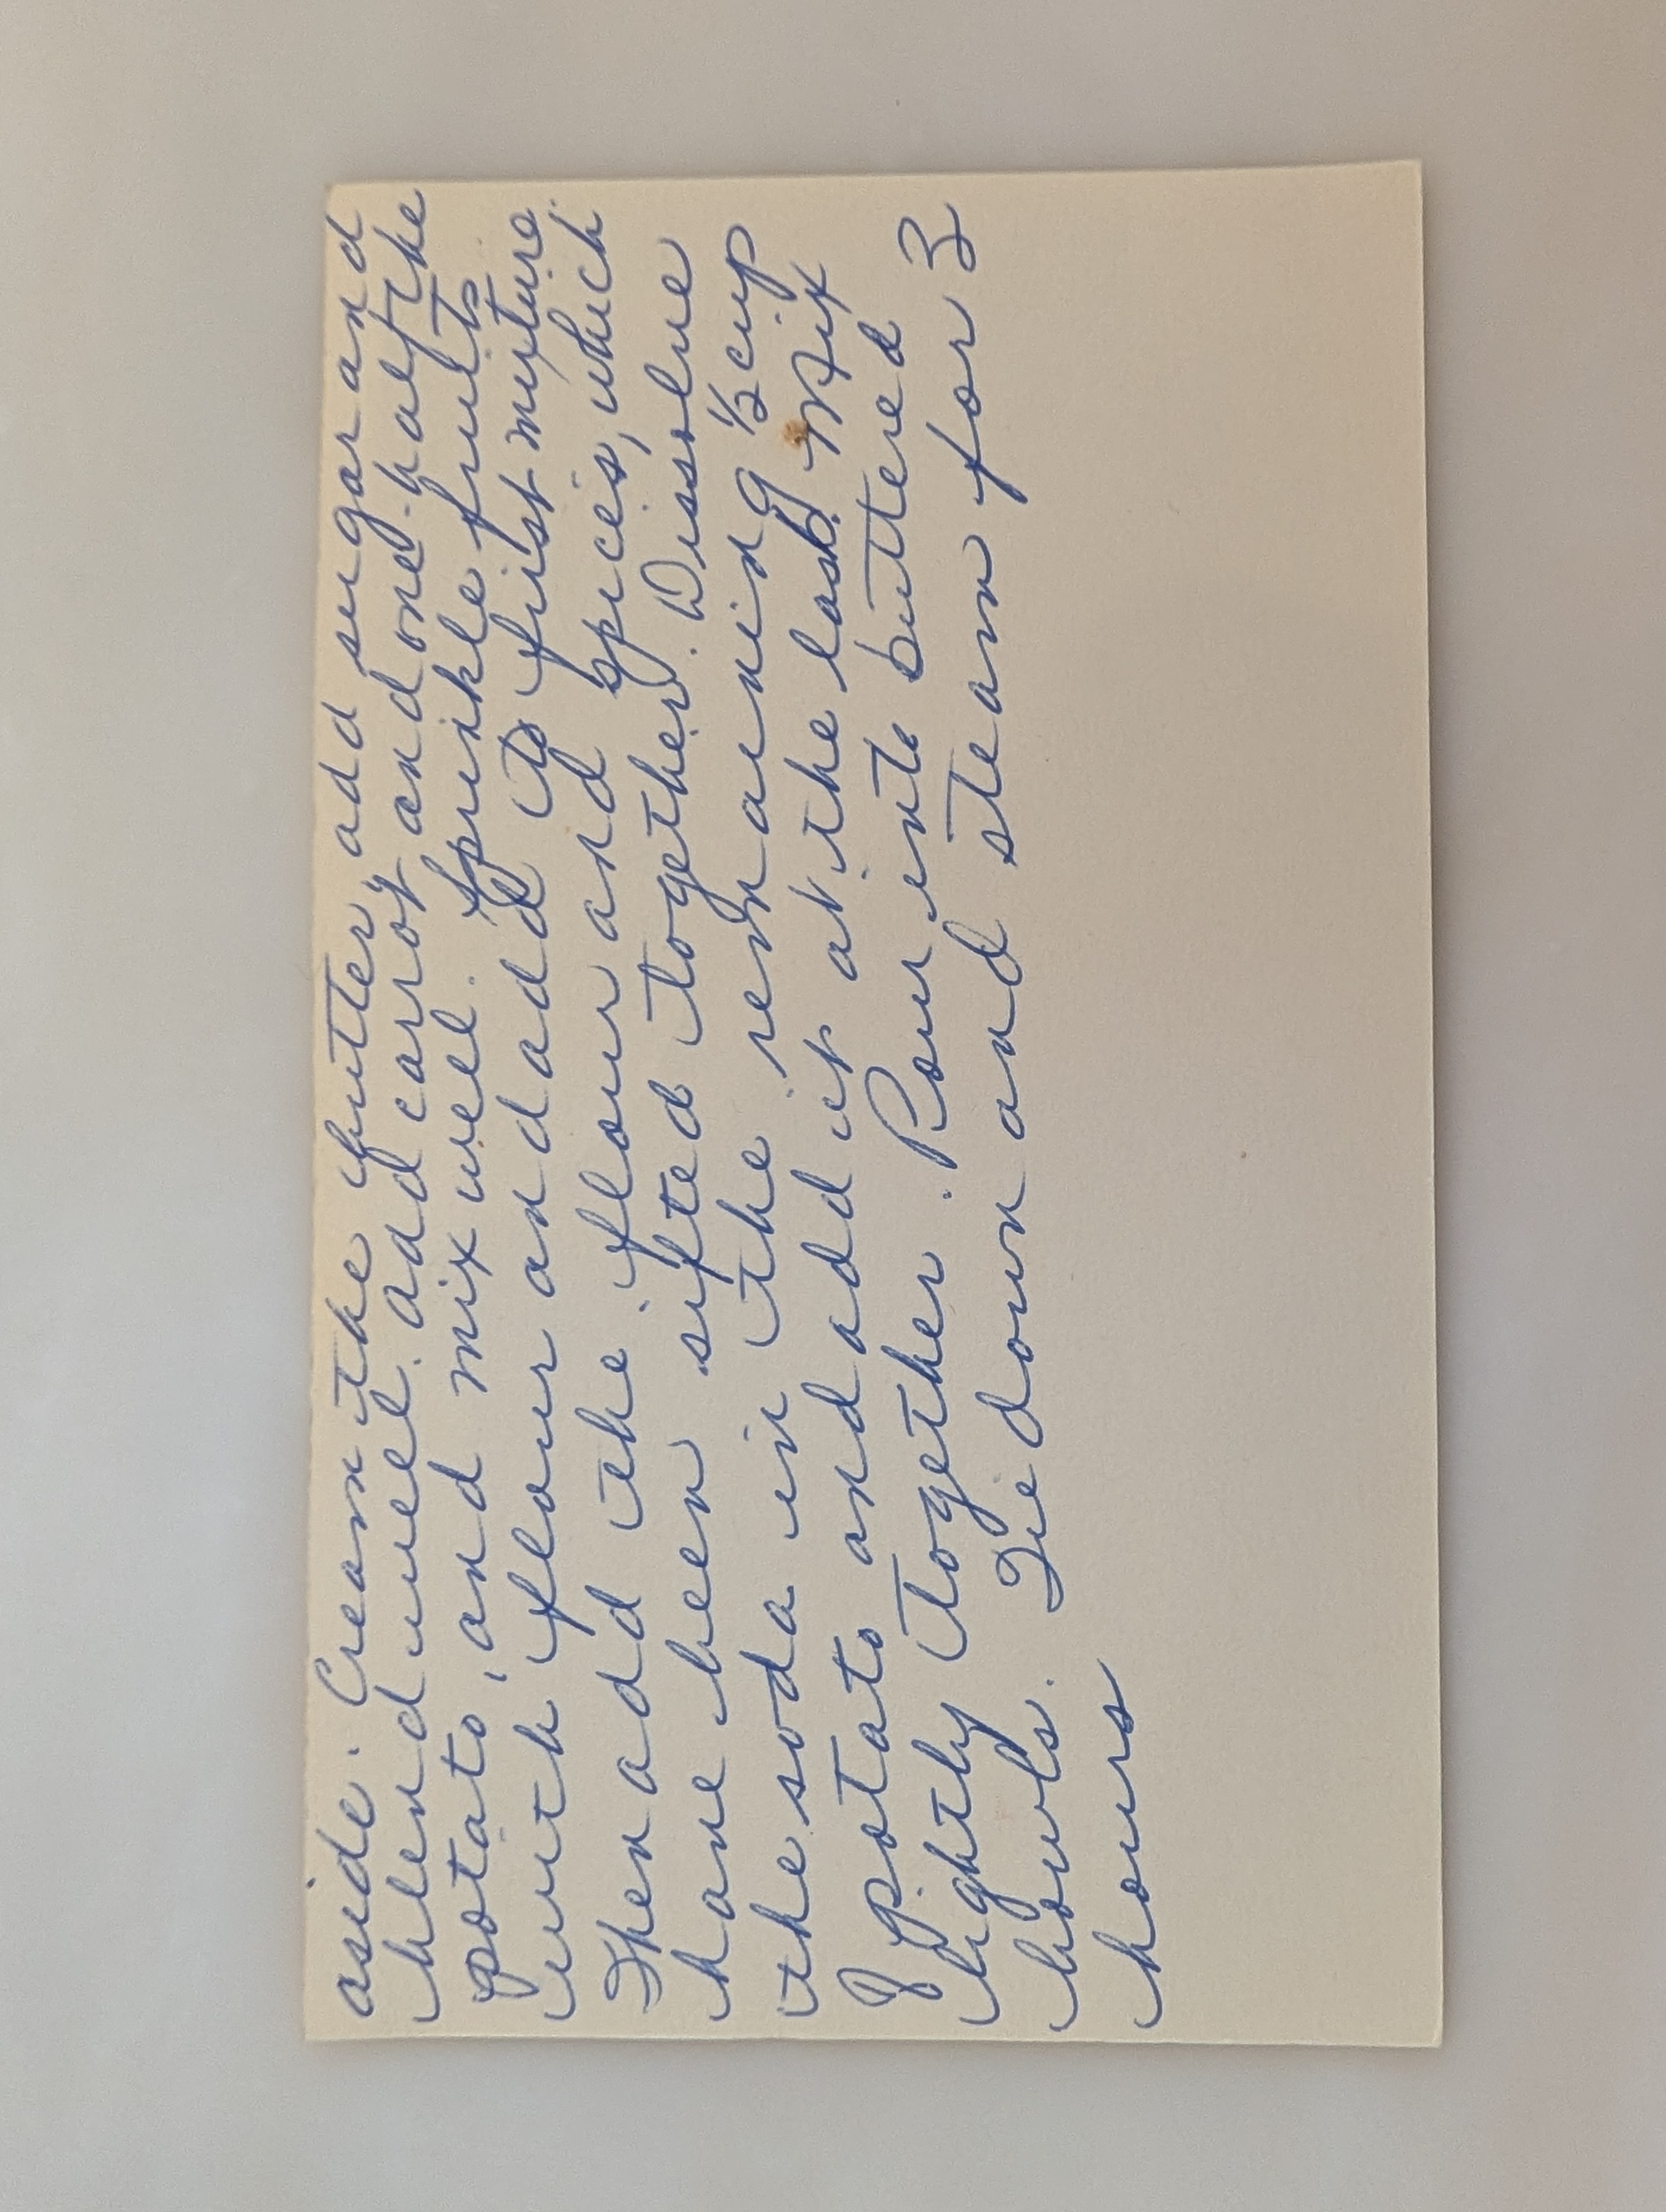 aside. Cream the butter, add sugar and
blend well. add carrot, and one-half the
potato, and mix well. Sprinkle fruits
with flour and add to first mixture.
Then add the flour and spices, which
have been sifted together. Dissolve
the soda in the remaining ½ cup
of potato and add it at the last. Mix
lightly together. Pour into buttered
bowls. Tie down and steam for 3
hours